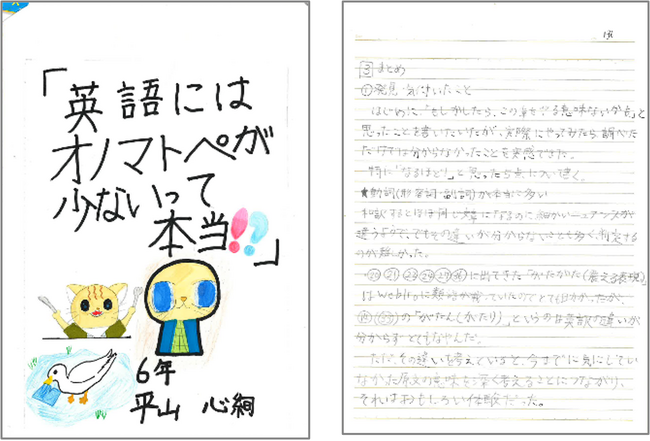 「英語には
オノマトペが
少ないって
本当!?」
6年
平山 心絢
③まとめ
①発見・気付いたこと
はじめに「もしかしたら、この
思ったことを書いていたが、実際にやってみたら調べた
だけでは分からなかったことを実感できた。
特に「なるほど!」と思った5点について書く。
★動詞(形容詞・副詞)が本当に多い
和訳するとほぼ同じ になるのに細かいニュアンスが
違うようで、でもその違いが分からないことも多く、判定する
のが難しかった。
に出てきた「がたがた(震える表現)
はWeblioに類語が載っていたのでとても助かったが、
の「がたん(かたり)」というのは英訳の違いが
分からずとてもなやんだ。
ただ、その違いを考えていると、今までに気にしてい
なかった原文の意味を深く考えることにつながり、
それはおもしろい体験だった。